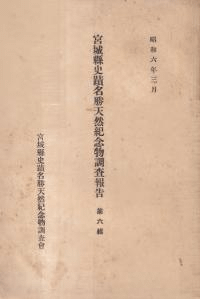 昭和六年三月
宮城縣史蹟名勝天然紀念物調査報告 第六輯
宮城縣史蹟名勝天然紀念物調査會